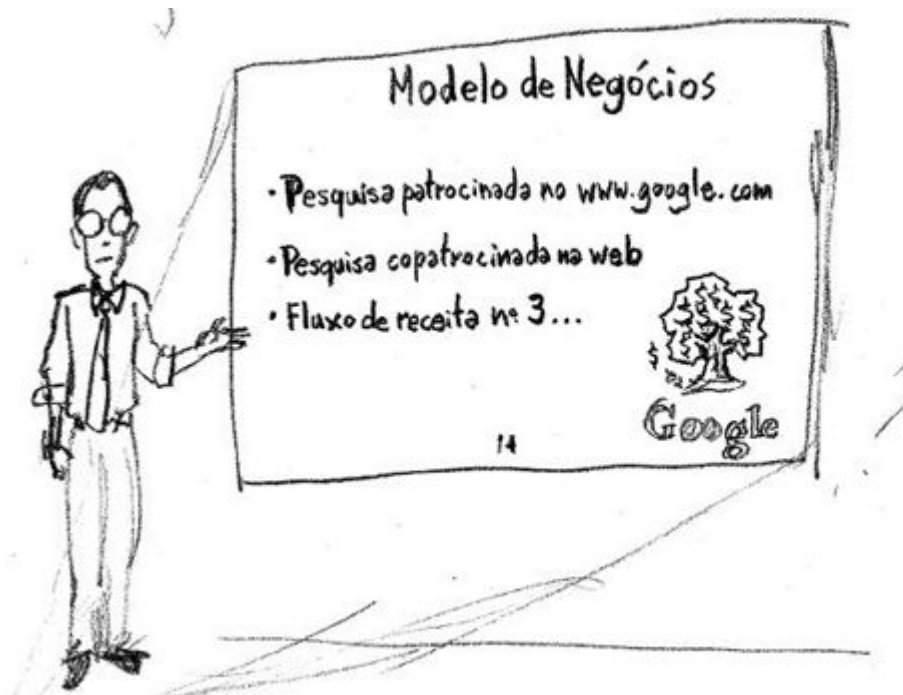 Modelo de Negócios
· Pesquisa patrocinada no www.google.com
· Pesquisa copatrocinada na web
· Fluxo de receita nº 3...
$
Google
14